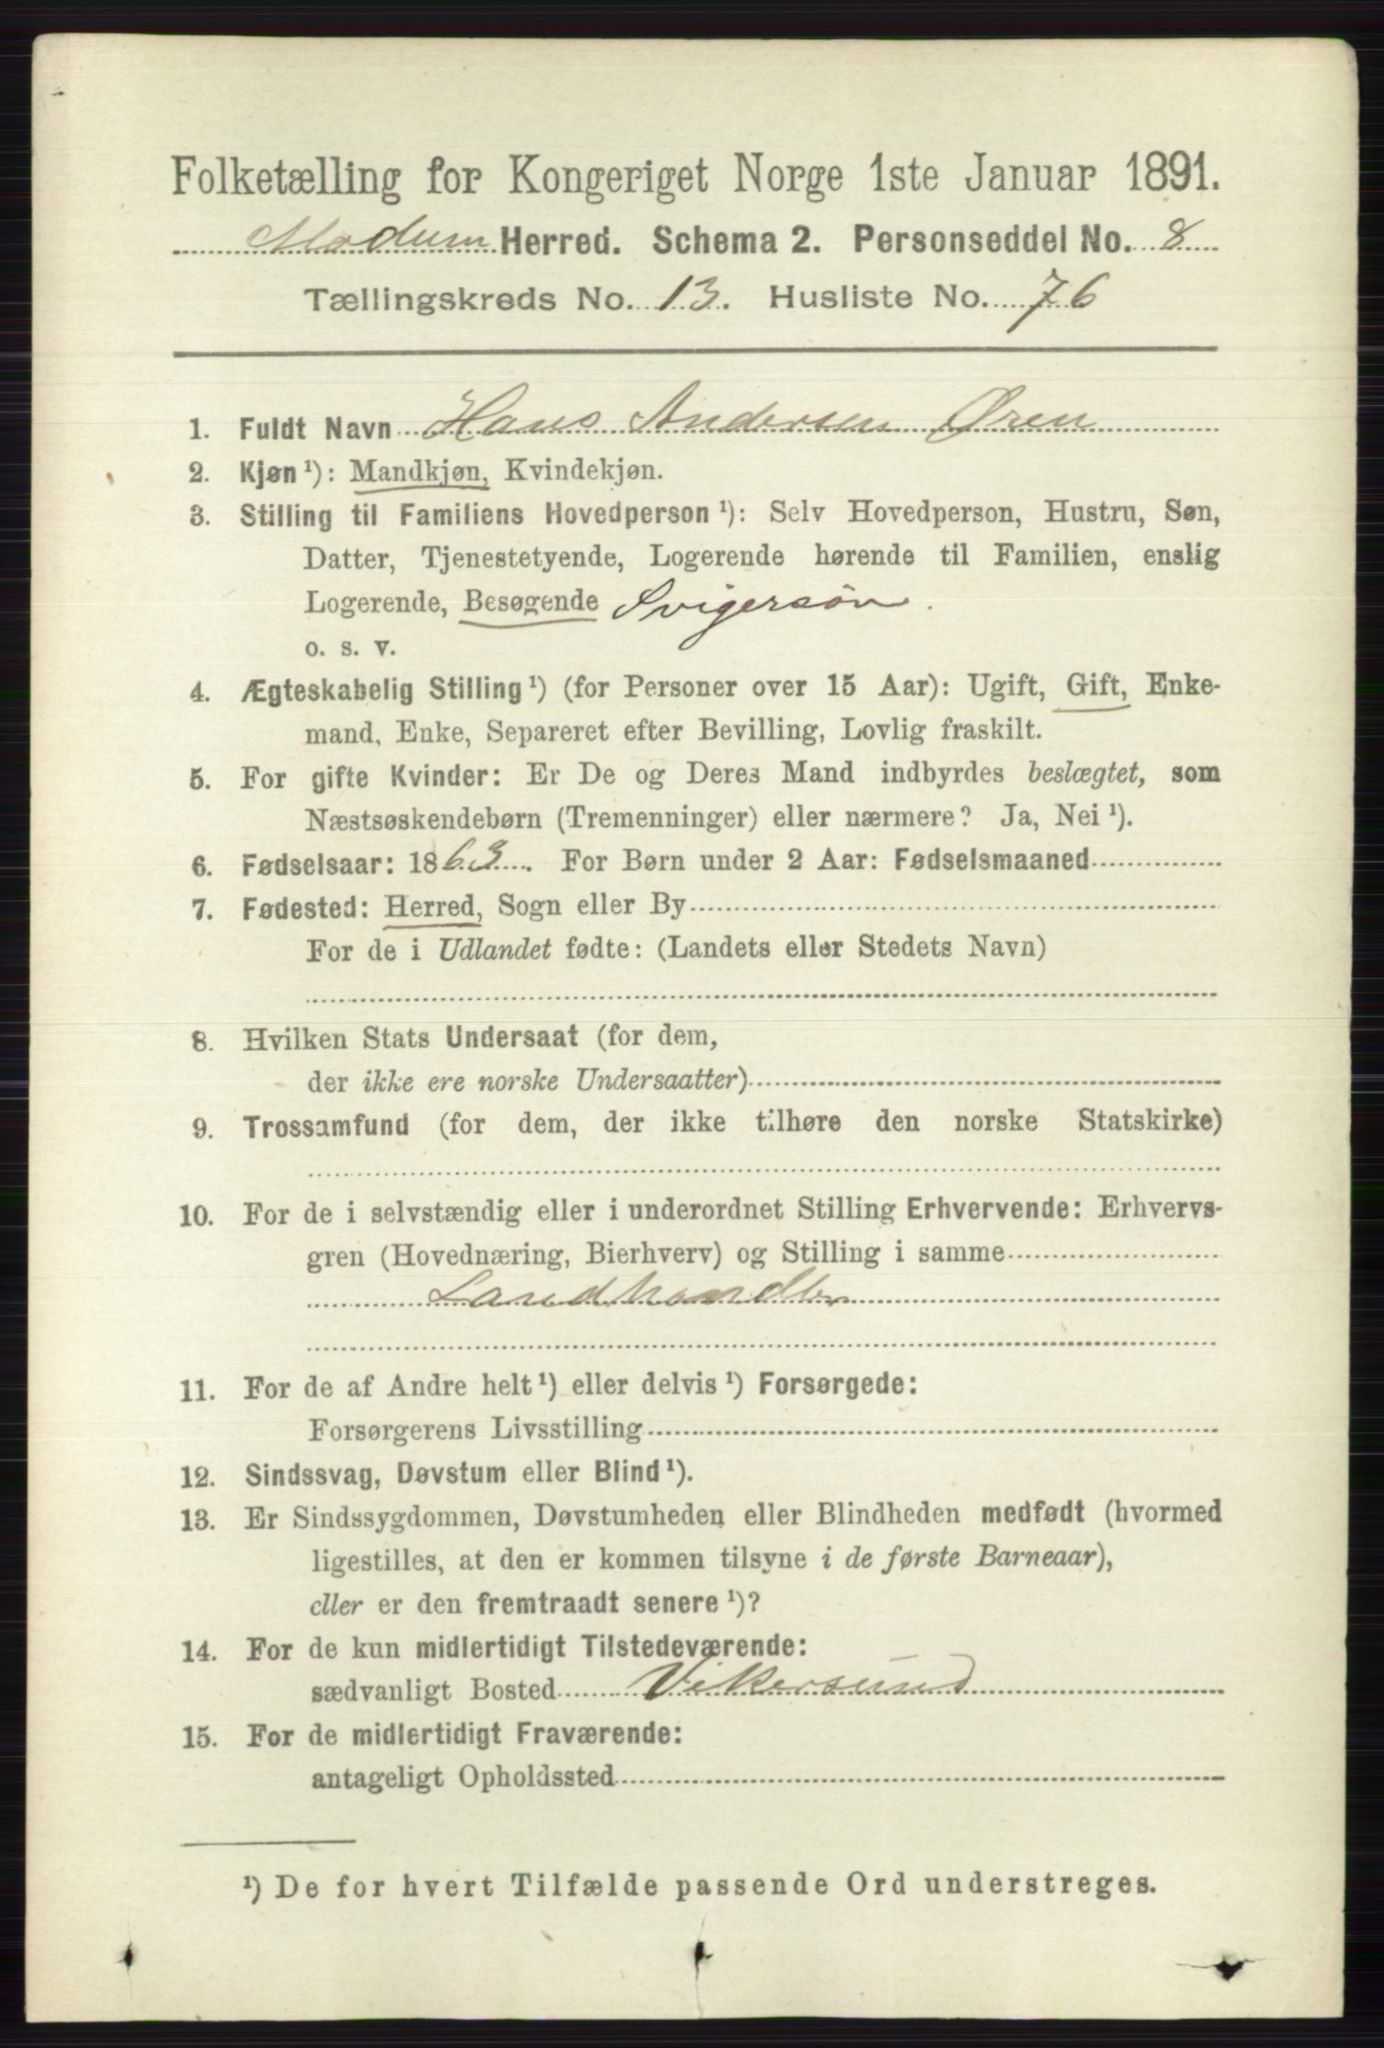 Folketælling for Kongeriget Norge 1ste Januar 1891.
Modum Herred. Schema 2. Personseddel No. 8
Tællingskreds No. 13. Husliste No. 76
1. Fuldt Navn Hans Andersen Øren
2. Kjøn¹): Mandkjøn, Kvindekjøn.
3. Stilling til Familiens Hovedperson¹): Selv Hovedperson, Hustru, Søn,
Datter, Tjenestetyende, Logerende hørende til Familien, enslig
Logerende, Besøgende Svigersön.
o. s. v.
4. Ægteskabelig Stilling¹) (for Personer over 15 Aar): Ugift, Gift, Enke-
mand, Enke, Separeret efter Bevilling, Lovlig fraskilt.
5. For gifte Kvinder: Er De og Deres Mand indbyrdes beslægtet, som
Næstsøskendebørn (Tremenninger) eller nærmere? Ja, Nei¹).
6. Fødselsaar: 1863. For Børn under 2 Aar: Fødselsmaaned
7. Fødested: Herred, Sogn eller By
For de i Udlandet fødte: (Landets eller Stedets Navn)
8. Hvilken Stats Undersaat (for dem,
der ikke ere norske Undersaatter)
9. Trossamfund (for dem, der ikke tilhøre den norske Statskirke)
10. For de i selvstændig eller i underordnet Stilling Erhvervende: Erhvervs-
gren (Hovednæring, Bierhverv) og Stilling i samme
Landhandler
11. For de af Andre helt¹) eller delvis¹) Forsørgede:
Forsørgerens Livsstilling
12. Sindssvag, Døvstum eller Blind¹).
13. Er Sindssygdommen, Døvstumheden eller Blindheden medfødt (hvormed
ligestilles, at den er kommen tilsyne i de første Barneaar),
eller er den fremtraadt senere¹)?
14. For de kun midlertidigt Tilstedeværende:
sædvanligt Bosted Vikersund
15. For de midlertidigt Fraværende:
antageligt Opholdssted
¹) De for hvert Tilfælde passende Ord understreges.